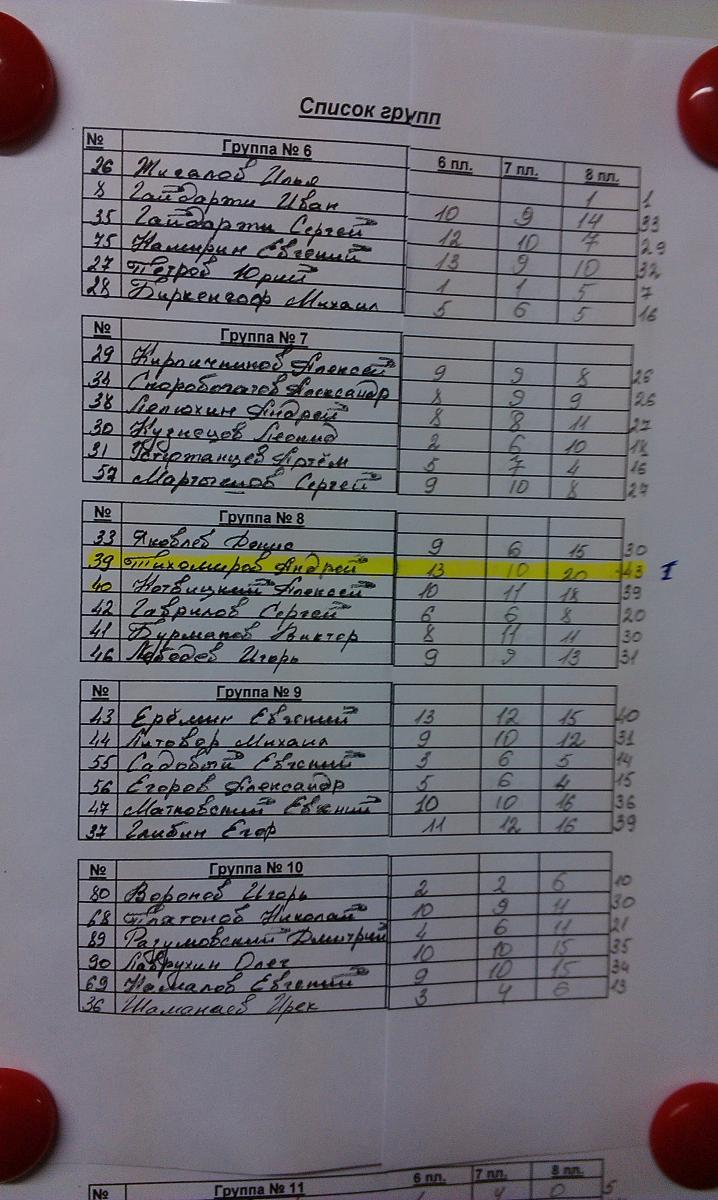 Список групп
№ Группа № 6 6 пл. 7 пл. 8 пл.
26 Жигалов Илья 1 1
8 Гайдаржи Иван 10 9 14 33
35 Гайдаржи Сергей 12 10 7 29
75 Намирин Евгений 13 9 10 32
27 Петров Юрий 1 1 5 7
28 Биркенгоф Михаил 5 6 5 16
№ Группа № 7
29 Кирпичников Алексей 9 9 8 26
34 Скоробогатов Александр 8 9 9 26
38 Лелюхин Андрей 8 8 11 27
30 Кузнецов Леонид 2 6 10 18
31 Артём 5 7 4 16
57 Мартынов Сергей 9 10 8 27
№ Группа № 8
33 Яковлев Денис 9 6 15 30
39 Тихомиров Андрей 13 10 20 43 I
40 Котвицкий Алексей 10 11 18 39
42 Гаврилов Сергей 6 6 8 20
41 Бурмаков Виктор 8 11 11 30
46 Лебедев Игорь 9 9 13 31
№ Группа № 9
43 Ерёмин Евгений 13 12 15 40
44 Литовор Михаил 9 10 12 31
55 Садовый Евгений 3 6 5 14
56 Егоров Александр 5 6 4 15
47 Матковский Евгений 10 10 16 36
37 Глибин Егор 11 12 16 39
№ Группа № 10
80 Воронов Игорь 2 2 6 10
68 Платонов Николай 10 9 11 30
89 Разумовский Дмитрий 4 6 11 21
90 Лаврухин Олег 10 10 15 35
69 Камалов Евгений 9 10 15 34
36 Шаманаев Ирек 3 4 6 13
№ Группа № 11 6 пл. 7 пл. 8 пл.